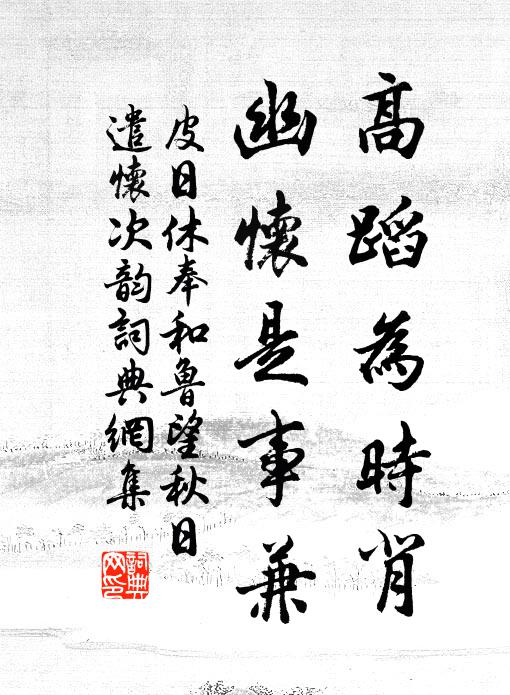 高蹈為時背
幽懷是事兼
皮日休奉和魯望秋日
遣懷次韵詞典網集
詞典網印